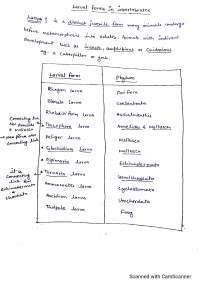 Larval forms in invertebrates
Larva is a distinct juvenile form many animals undergo
before metamorphosis into adults. Animals with indirect
development such as insects, amphibians or Cnidarians
eg. a caterpillar or grub
Larval form
Phylum
larva
Porifera
larva
Coelenterata
larva
Aschelminthes
Connecting link
Trochophore larva
Annelida & Mollusca
Veliger larva
Mollusca
Connecting link
Glochidium larva
Mollusca
Bipinnaria larva
Echinodermata
it is
connecting
link b/w
Echinodermata
&
Chordata
Tornaria larva
Hemichordata
Ammocoetes larva
Cyclostomata
larva
Urochordata
Tadpole larva
Frog
Scanned with CamScanner